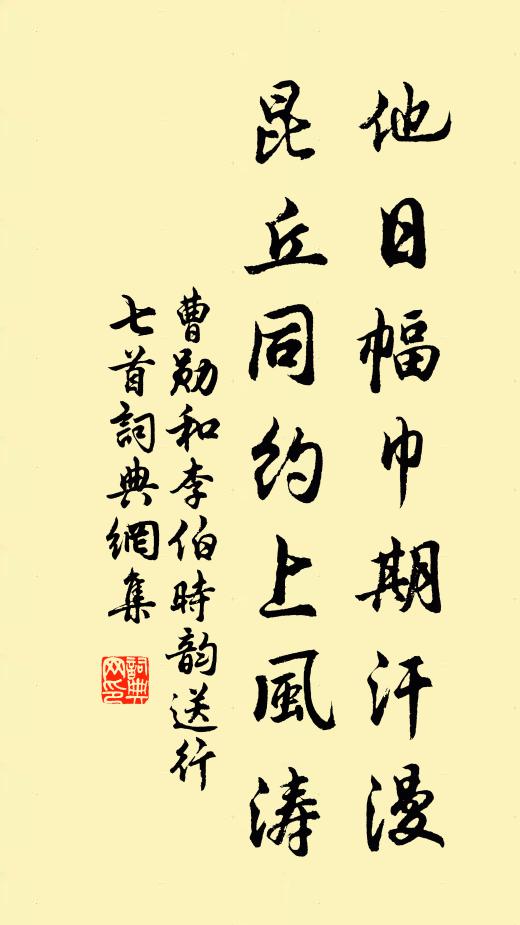 他日幅巾期汗漫
昆丘同約上風涛
曹勛和李伯時韵送行
七首詞典網集
詞典网印